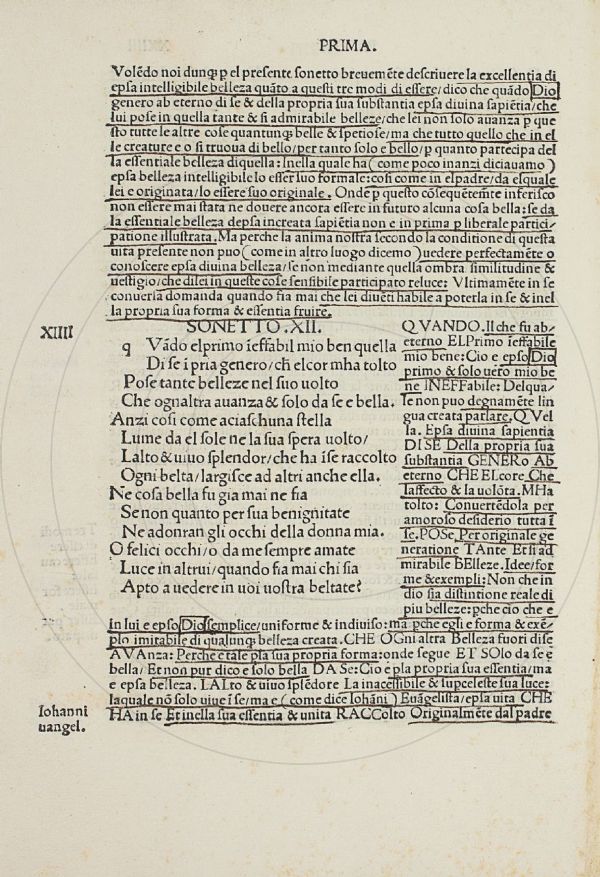 PRIMA.
Volēdo noi dunq̄ p̱ el presente sonetto breuemēte descriuere la excellentia di
epsa intelligibile belleza quāto a questi tre modi di essere/dico che quādo Dio
genero ab eterno di se & della propria sua substantia epsa diuina sapiētia/che
lui pose in quella tante & si admirabile belleze/che lei non solo auanza p̱ que
sto tutte le altre cose quantunq̄ belle & spetiose/ma che tutto quello che in el
le creature e o si truoua di bello/per tanto solo e bello/p̱ quanto partecipa del
la essentiale belleza diquella: Inella quale ha ( come poco inanzi diciauamo )
epsa belleza intelligibile lo esser suo formale: cosi come in el padre/da esquale
lei e originata/lo essere suo originale. Onde p̱ questo cōsequētemēte inferisco
non essere mai stata ne douere ancora essere in futuro alcuna cosa bella: se da
la essentiale belleza depsa increata sapiētia non e in prima p̱ liberale partici-
patione illustrata. Ma perche la anima nostra secondo la conditione di questa
uita presente non puo ( come in altro luogo dicemo ) uedere perfectamēte o
conoscere epsa diuina belleza/se non mediante quella ombra similitudine &
uestigio/che di lei in queste cose sensibile participato reluce: Vltimamēte in se
conuersa domanda quando fia mai che lei diuēti habile a poterla in se & inel
la propria sua forma & essentia fruire.
XIIII
SONETTO .XII.
q Vādo el primo ieffabil mio ben quella
Di se ī pria genero/ch̄ el cor mha tolto
Pose tante belleze nel suo uolto
Che ognaltra auanza & solo da se e bella.
Anzi cosi come aciaschuna stella
Lume da el sole ne la sua spera uolto/
Lalto & uiuo splendor/che ha īse raccolto
Ogni belta/largisce ad altri anche ella.
Ne cosa bella fu gia mai ne fia
Se non quanto per sua benignitate
Ne adonran gli occhi della donna mia.
O felici occhi/o da me sempre amate
Luce in altrui/quando fia mai chi sia
Apto a uedere in uoi uostra beltate?
QVANDO. Il che fu ab-
eterno EL Primo ieffabile
mio bene: Cio e epso Dio
primo & solo uero mio be
ne INEFFabile: Del qua-
le non puo degnamēte lin
gua creata parlare. QVel
la. Epsa diuina sapientia
DI SE Della propria sua
substantia GENERo Ab
eterno CHE EL core. Che
laffecto & la uolōta. MHa
tolto: Conuertēdola per
amoroso desiderio tutta ī
se. POSe. Per originale ge
neratione TAnte Et si ad
mirabile BElleze. Idee/for
me & exempli: Non che in
dio sia distintione reale di
piu belleze: pche cio che e
in lui e epso Dio semplice/uniforme & indiuiso: ma pche egli e forma & exē-
plo imitabile di qualunq̄ belleza creata. CHE OGni altra Belleza fuori di se
AVAnza: Perche e tale p̱ la sua propria forma: onde segue ET SOlo da se e
bella/Et non pur dico e solo bella DA Se: Cio e p̱ la propria sua essentia/ma
e epsa belleza. LALto & uiuo splēdore La inacessibile & supceleste sua luce:
la quale nō solo uiue ī se/ma e ( come dice Iohāni ) Euāgelista/epsa uita CHE
HA in se Et inella sua essentia & unita RACColto Originalmēte dal padre
Iohanni
uangel.